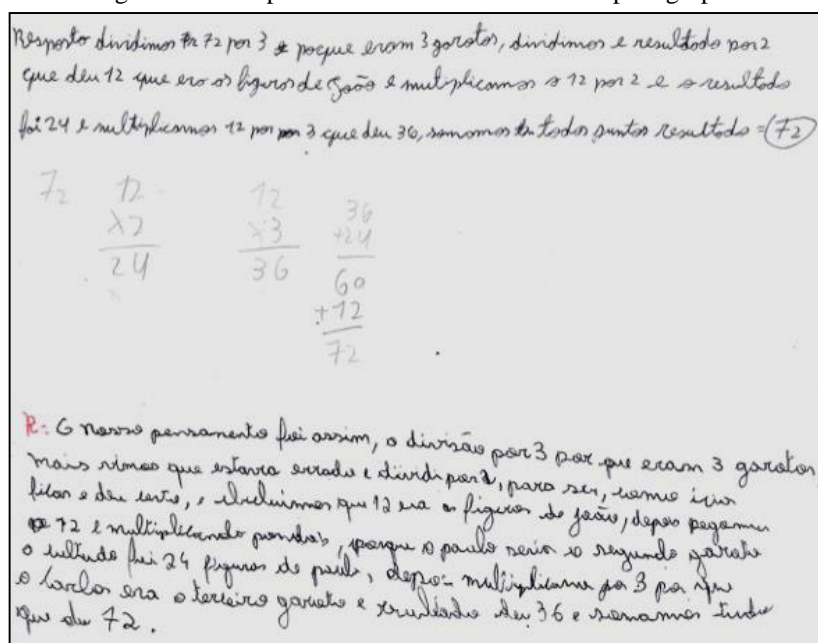 Resposto dividimos 72 por 3 porque eram 3 garotos, dividimos e resultado por 2
que deu 12 que era os figuras de João e mutiplicamos o 12 por 2 e o resultado
foi 24 e multiplicamos 12 por 3 que deu 36, somamos todos juntos resultado = 72
72 12 12 36
x2 x3 +24
24 36 60
+12
72
R: O nosso pensamento foi assim, a divisão por 3 por que eram 3 garotos
mais vimos que estava errado e dividi por, para ser, como
ficar e deu certo, e que 12 era as figuras de João, depois pegamos
12 e multiplicando por dois, porque o paulo seria o segundo garoto
o foi 24 figuras de paulo, depois multiplicamos por 3 por que
o Carlos era o terceiro garoto e deu 36 e somamos tudo
que deu 72.